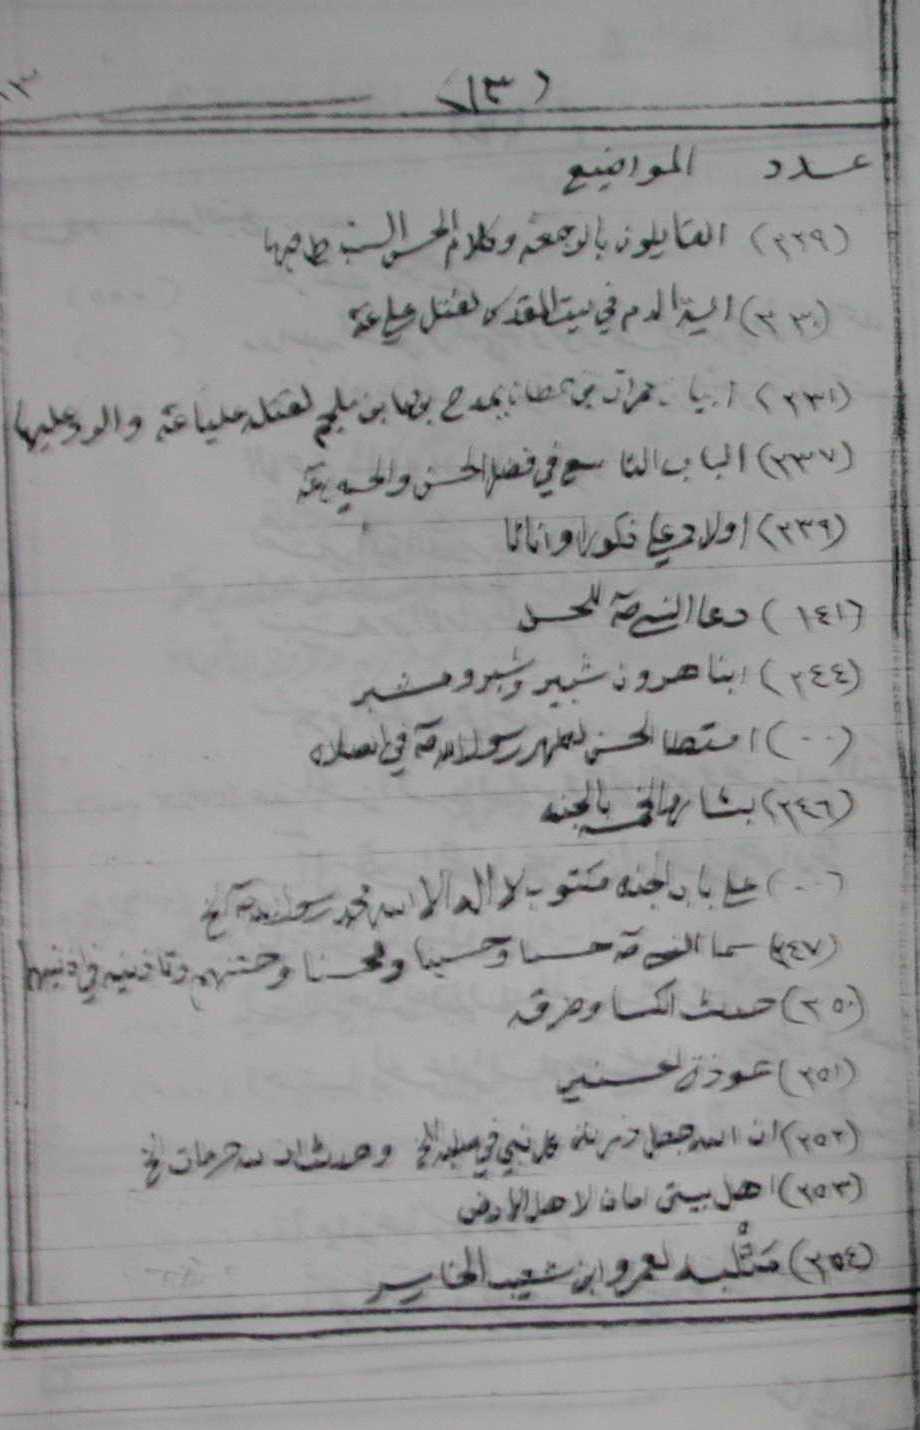 (١٣)
١٣
عدد المواضيع
(٢٢٩) القايلون بالرجعة وكلام الحسن السبط فيها
(٢٣٠) الدم في بيت المقدس لقتل علي عم
(٢٣١) ابيات عمران بن حطان يمدح بها ابن ملجم لقتله عليا عم والرد عليها
(٢٣٧) الباب التاسع في فضل الحسن والحسين عم
(٢٣٩) اولاد علي ذكورا واناثا
(١٤١) دعا النبي صم للحسن
(٢٤٤) ابنا هرون شبير وشبر ومشبر
(٠٠) امتطا الحسن لظهر رسول الله صم في الصلاه
(٢٤٦) بشارة بالجنه
(٠٠) على باب الجنه مكتوب لا اله الا الله محمد رسول الله صم الخ
(٢٤٧) سما النبي صم حسنا وحسينا ومحسنا وختنهم وتاذينه في اذنيهم
(٢٥٠) حديث الكسا وطرقه
(٢٥١) عوذة الحسنين
(٢٥٢) ان الله جعل ذرية كل نبي في صلبه الخ وحديث ان لله حرمات الخ
(٢٥٣) اهل بيتي امان لاهل الارض
(٢٥٤) لعمرو ابن شعيب